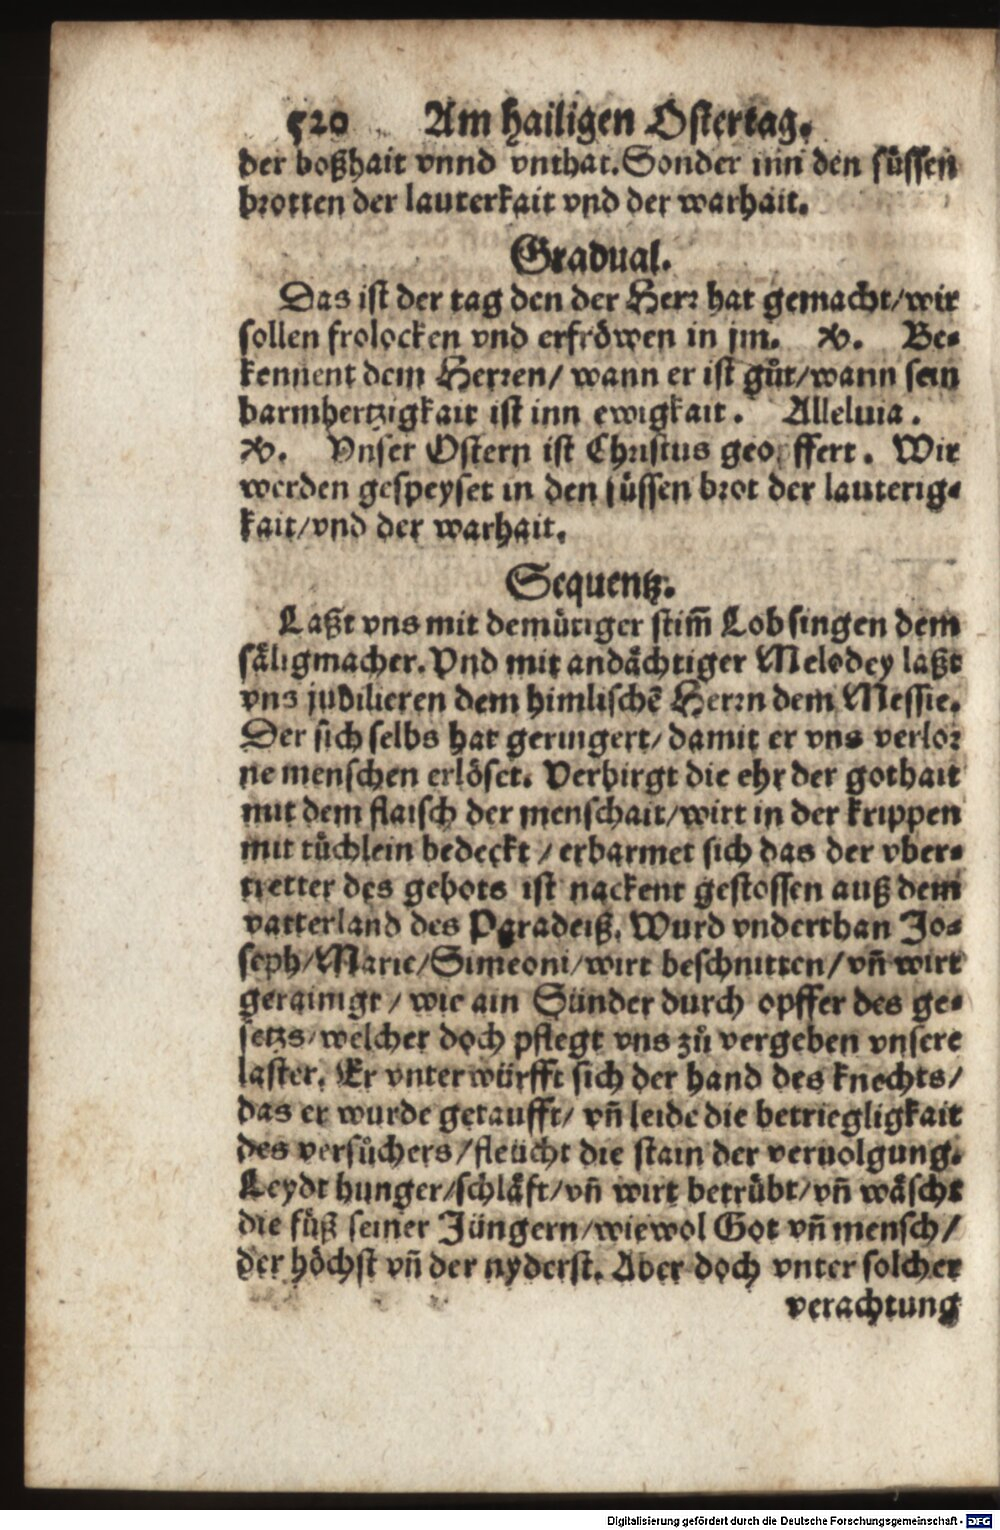 520 Am hailigen Ostertag.
der boßhait vnnd vnthat. Sonder inn den süssen
brotten der lauterkait vnd der warhait.
Gradual.
Das ist der tag den der Herr hat gemacht/wir
sollen frolocken vnd erfröwen in jm. ℣. Be-
kennent dem Herren/ wann er ist gůt/wann sein
barmhertzigkait ist inn ewigkait. Alleluia.
℣. Vnser Ostern ist Christus geopffert. Wir
werden gespeyset in den süssen brot der lauterig-
kait/vnd der warhait.
Sequentz.
Laßt vns mit demütiger stim̃ Lobsingen dem
säligmacher. Vnd mit andächtiger Melodey laßt
vns jubilieren dem himlischẽ Herrn dem Messie.
Der sich selbs hat geringert/damit er vns verlor
ne menschen erlöset. Verbirgt die ehr der gothait
mit dem flaisch der menschait/wirt in der krippen
mit tüchlein bedeckt/erbarmet sich das der vber-
tretter des gebots ist nackent gestossen auß dem
vatterland des Paradeiß. Wurd vnderthan Jo-
seph/Marie/Simeoni/wirt beschnitten/vñ wirt
gerainigt/wie ain Sünder durch opffer des ge-
setzs/welcher doch pflegt vns zů vergeben vnsere
laster. Er vnterwürfft sich der hand des knechts/
das er wurde getaufft/vñ leide die betriegligkait
des versůchers/fleücht die stain der veruolgung.
Leydt hunger/schläft/vñ wirt betrübt/vñ wäscht
die füß seiner Jüngern/wiewol Got vñ mensch/
der höchst vñ der nyderst. Aber doch vnter solcher
verachtung
Digitalisierung gefördert durch die Deutsche Forschungsgemeinschaft - DFG